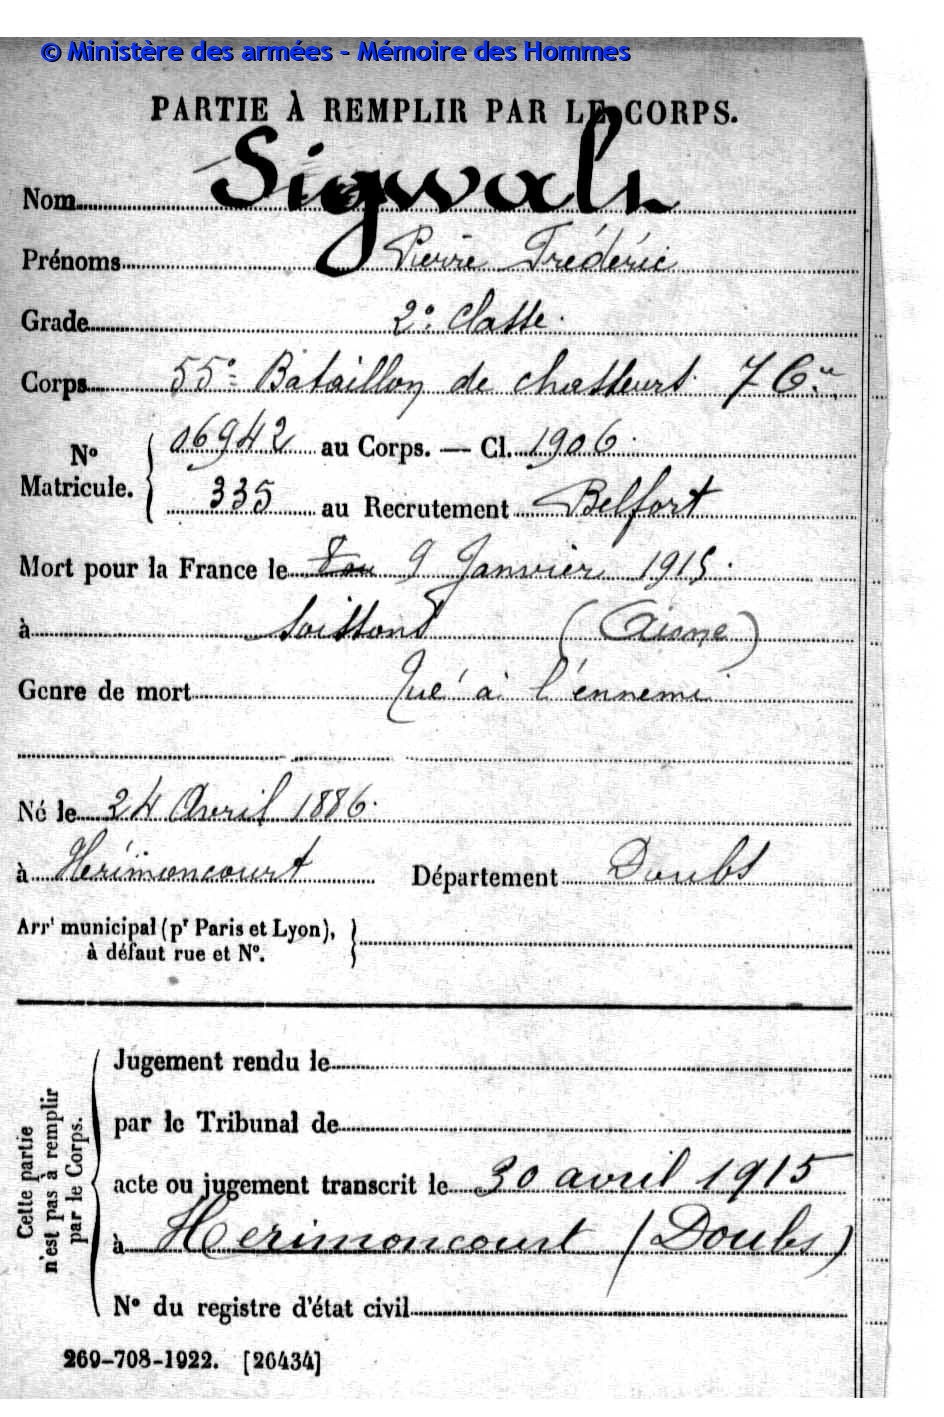 © Ministère des armées - Mémoire des Hommes
PARTIE À REMPLIR PAR LE CORPS.
Nom Sigwalt
Prénoms Pierre Frédéric
Grade 2e Classe.
Corps 55e Bataillon de chasseurs 7 Cie
No Matricule. { 06942 au Corps. — Cl. 1906.
335 au Recrutement Belfort
Mort pour la France le 9 Janvier 1915.
à Soissons (Aisne)
Genre de mort Tué à l'ennemi
Né le 24 Avril 1886.
à Hérimoncourt Département Doubs
Arrt municipal (pr Paris et Lyon),
à défaut rue et No. }
Cette partie
n'est pas à remplir
par le Corps.
Jugement rendu le
par le Tribunal de
acte ou jugement transcrit le 30 avril 1915
à Herimoncourt (Doubs)
No du registre d'état civil
269-708-1922. [26434]